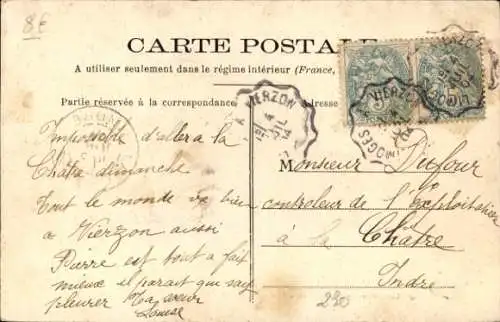 8E
CARTE POSTALE
A utiliser seulement dans le régime intérieur (France,
Partie réservée à la correspondance
Adresse
VIERZON
4
JUIL
04
VIERZON
LIMOGES
Impossible d'aller à la
Châtre dimanche
Tout le monde va bien
a Vierzon aussi
Pierre est tout a fait
mieux il parait que sait
pleurer Ta soeur
Louise
Monsieur Dufour
controleur de l'Exploitation
à la Châtre
Indre
220